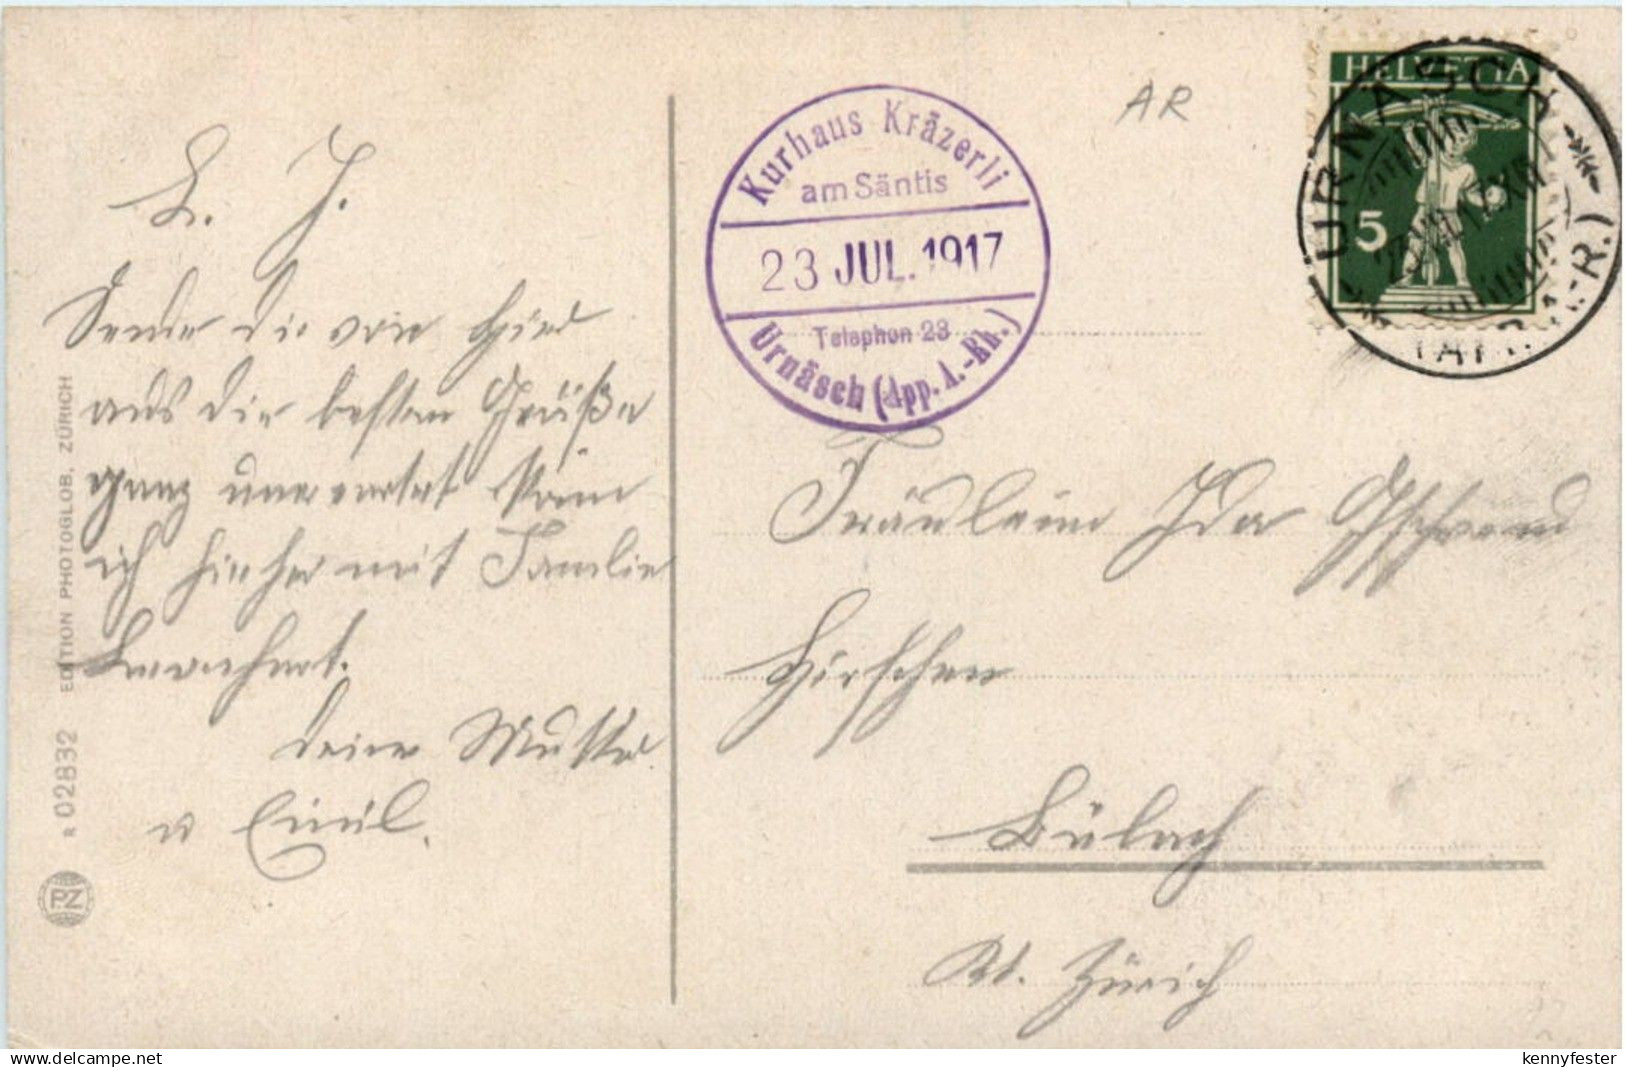 L. J.
Sende dir von hier
aus die besten Grüße
ganz unerwartet kam
ich hieher mit Familie
deine Mutter
u Emil.
EDITION PHOTOGLOB, ZÜRICH
R 02832
PZ
Kurhaus Kräzerli
am Säntis
23 JUL. 1917
Telephon 23
Urnäsch (App. A.-Rh.)
AR
HELVETIA
5
URNÄSCH
Fräulein Ida Gschwend
Hirschen
Bülach
Kt. Zürich
delcampe.net
kennyfester